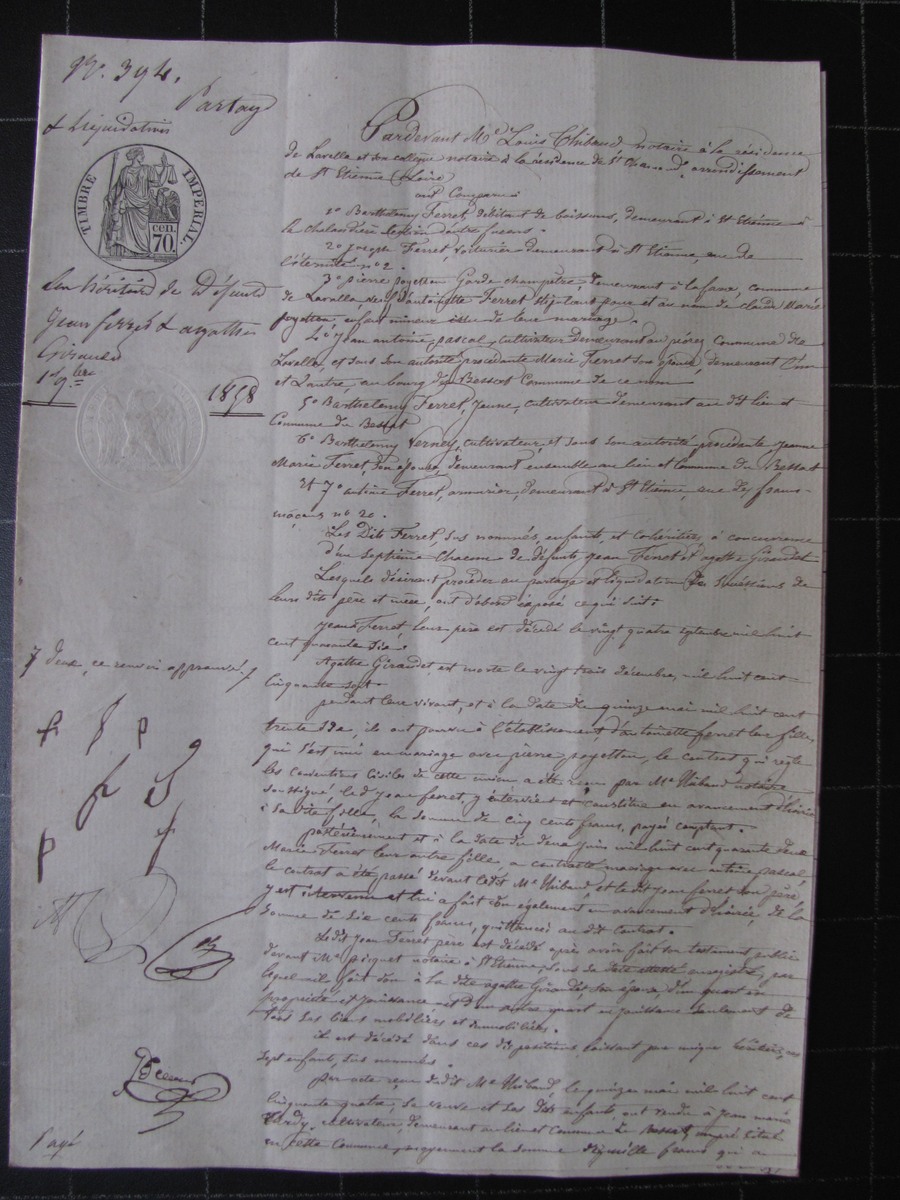 N.° 394.
Partage
& Liquidation
TIMBRE IMPERIAL
CEN. 70.
Les héritiers de Défunts
Jean ferret & agathe
Giraudet
1858
Pardevant Me Louis Thibaud notaire à la résidence
de Lavalla et son collègue notaire à la résidence de St Chamond, arrondissement
de St Etienne (Loire
ont Comparu
1° Barthelemy Ferret débitant de boissons, demeurant à St Etienne
2° Joseph Ferret, voiturier demeurant à St Etienne, rue de
l'éternité n° 2.
3° pierre poyetton Garde champêtre, demeurant à commune
de Lavalla, d'antoinette Ferret stipulant pour et au nom de claude Marie
poyetton enfant mineur issu de leur mariage.
4° Jean antoine pascal, cultivateur demeurant au Commune de
Lavalla, et sous son autorité procédante Marie Ferret son épouse demeurant l'un
et l'autre, au bourg du Bessat Commune de ce nom
5° Barthelemy Ferret, Jeune, cultivateur demeurant au dit lieu et
Commune du Bessat
6° Barthelemy Verney, cultivateur, et sous son autorité procédante Jeanne
Marie Ferret, son épouse, demeurant ensemble au lieu et Commune du Bessat
Et 7° antoine Ferret, armurier, demeurant à St Etienne rue des francs-
maçons n° 20.
Les Dits Ferret, sus nommés, enfants, et cohéritiers, à concurrence
d'un Septième Chacun de défunts Jean Ferret et agathe Giraudet
Lesquels désirant procéder au partage et liquidation des successions de
leurs dits père et mère, ont d'abord exposé ce qui suit:
Jean Ferret, leur père est décédé le vingt quatre septembre mil huit
cent quarante six.
Agathe Giraudet est morte le vingt trois décembre, mil huit cent
cinquante sept.
deux, ce renvoi approuvé
pendant leur vivant, et à la date du quinze mai mil huit cent
trente six, ils ont pourvu à l'établissement d'antoinette ferret leur fille,
qui s'est unie en mariage avec pierre poyetton, le contrat qui règle
les conventions civiles de cette union a été reçu par Me Thibaud notaire
soussigné, led Jean ferret, y intervint et constitua en avancement d'hoirie
à sa dite fille, la somme de cinq cents francs, payé comptant.
postérieurement et à la date du deux Juin mil huit cent quarante deux
Marie Ferret leur autre fille a contracté mariage avec antoine pascal,
le contrat a été passé devant ledit Me Thibaud, et le dit Jean ferret son père
y est intervenu et lui a fait don également en avancement d'hoirie, de la
somme de six cents francs, quittancés au dit contrat.
Ledit Jean Ferret père est décédé après avoir fait son testament public
devant Me piquet notaire à St Etienne, sous sa date enregistré, par
lequel il fait don à la dite agathe Giraudet, son épouse, d'un quart en
propriété et jouissance et d'un autre quart en jouissance seulement de
tous ses biens mobiliers et immobiliers.
il est décédé dans ces dispositions laissant pour unique héritiers, ses
sept enfants, sus nommés.
par acte reçu dudit Me Thibaud, le quinze mai mil huit cent
cinquante quatre, sa veuve et ses dits enfants ont vendu à Jean marie
Tardy, cultivateur, demeurant au lieu et commune du Bessat,
en cette Commune, moyennant la somme de mille francs qui a
Payé